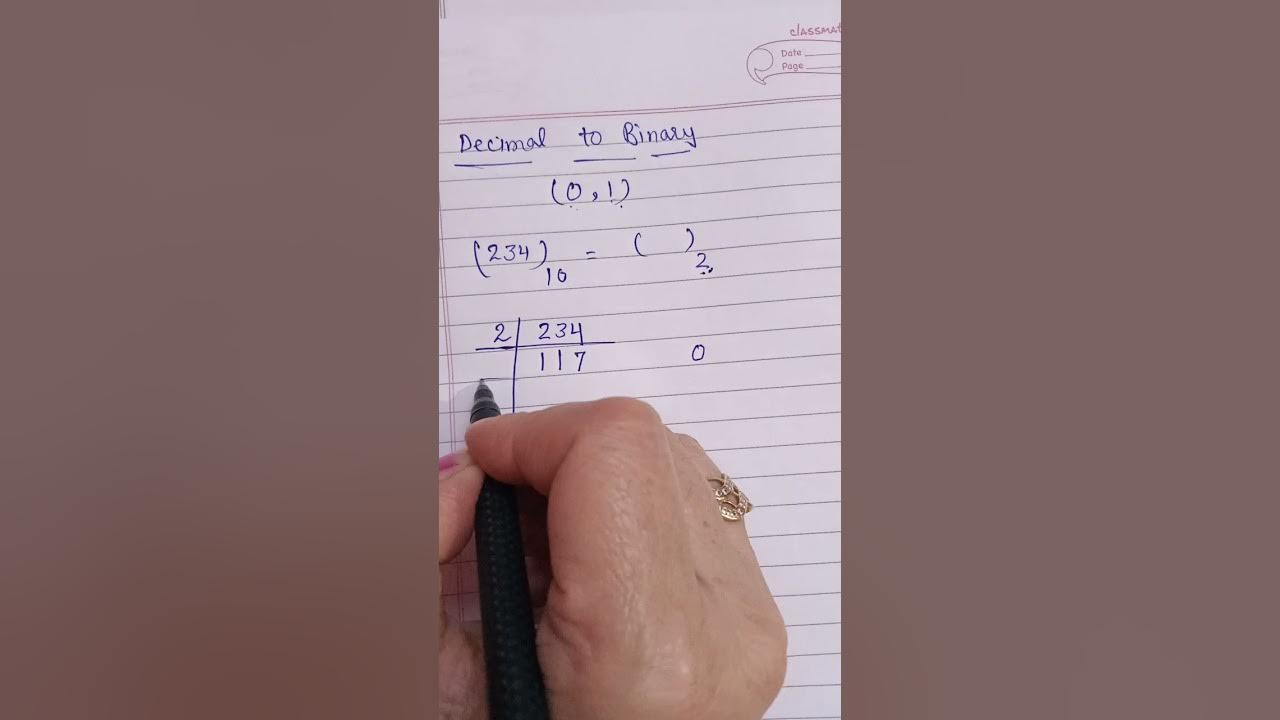 classmat
Date
Page
Decimal to Binary
(0,1)
(234)10 = ( )2
2 | 234
117 0